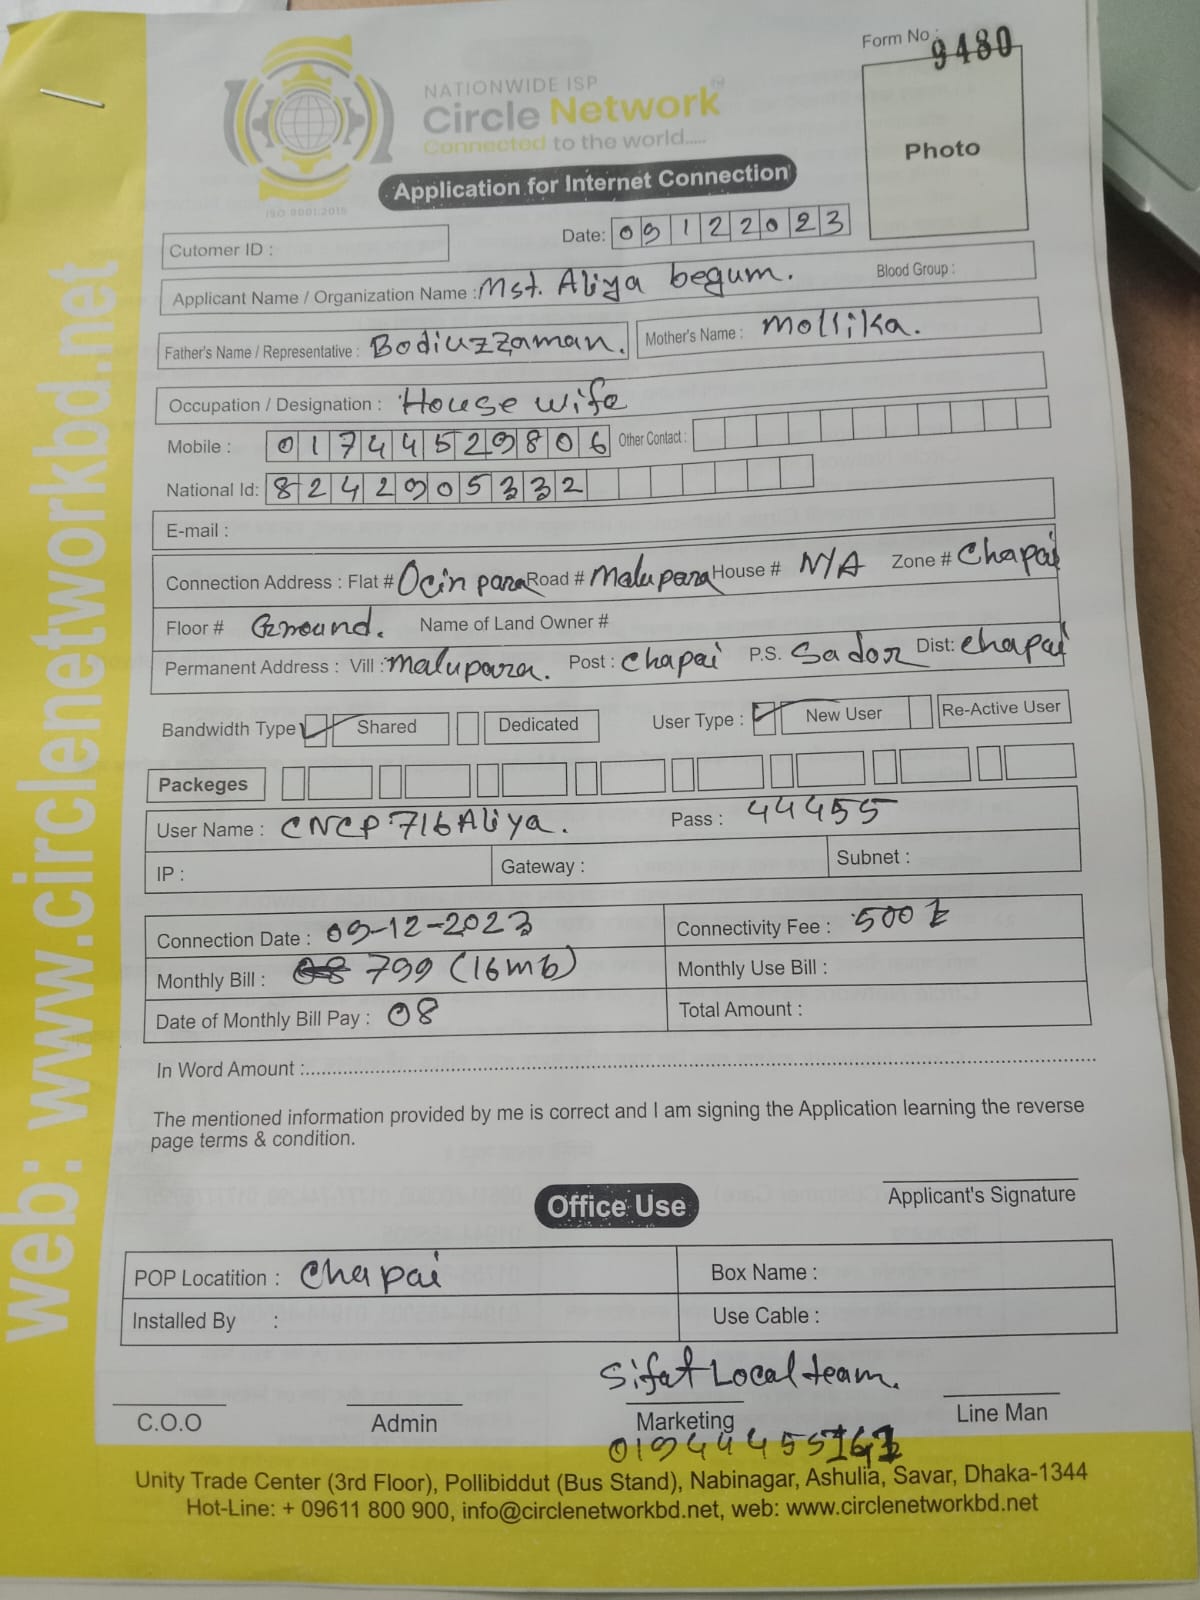 Form No : 9480
NATIONWIDE ISP
Circle Network TM
Connected to the world.....
Photo
ISO 9001:2015
Application for Internet Connection
Cutomer ID :
Date: 09122023
Applicant Name / Organization Name : Mst. Aliya begum. Blood Group :
Father's Name / Representative : Bodiuzzaman. Mother's Name : Mollika.
Occupation / Designation : House wife
Mobile : 01744529806 Other Contact :
National Id: 8242905332
E-mail :
Connection Address : Flat # Ocin para Road # Malupara House # N/A Zone # Chapai
Floor # Ground. Name of Land Owner #
Permanent Address : Vill : Malupara. Post : Chapai P.S. Sador Dist: Chapai
Bandwidth Type Shared Dedicated User Type : New User Re-Active User
Packeges
User Name : CNCP716Aliya. Pass : 44455
IP : Gateway : Subnet :
Connection Date : 09-12-2023 Connectivity Fee : 500
Monthly Bill : 799 (16mb) Monthly Use Bill :
Date of Monthly Bill Pay : 08 Total Amount :
In Word Amount :
The mentioned information provided by me is correct and I am signing the Application learning the reverse
page terms & condition.
Applicant's Signature
Office Use
POP Locatition : Chapai Box Name :
Installed By : Use Cable :
Sifat Local team.
C.O.O Admin Marketing Line Man
Unity Trade Center (3rd Floor), Pollibiddut (Bus Stand), Nabinagar, Ashulia, Savar, Dhaka-1344
Hot-Line: + 09611 800 900, info@circlenetworkbd.net, web: www.circlenetworkbd.net
web: www.circlenetworkbd.net